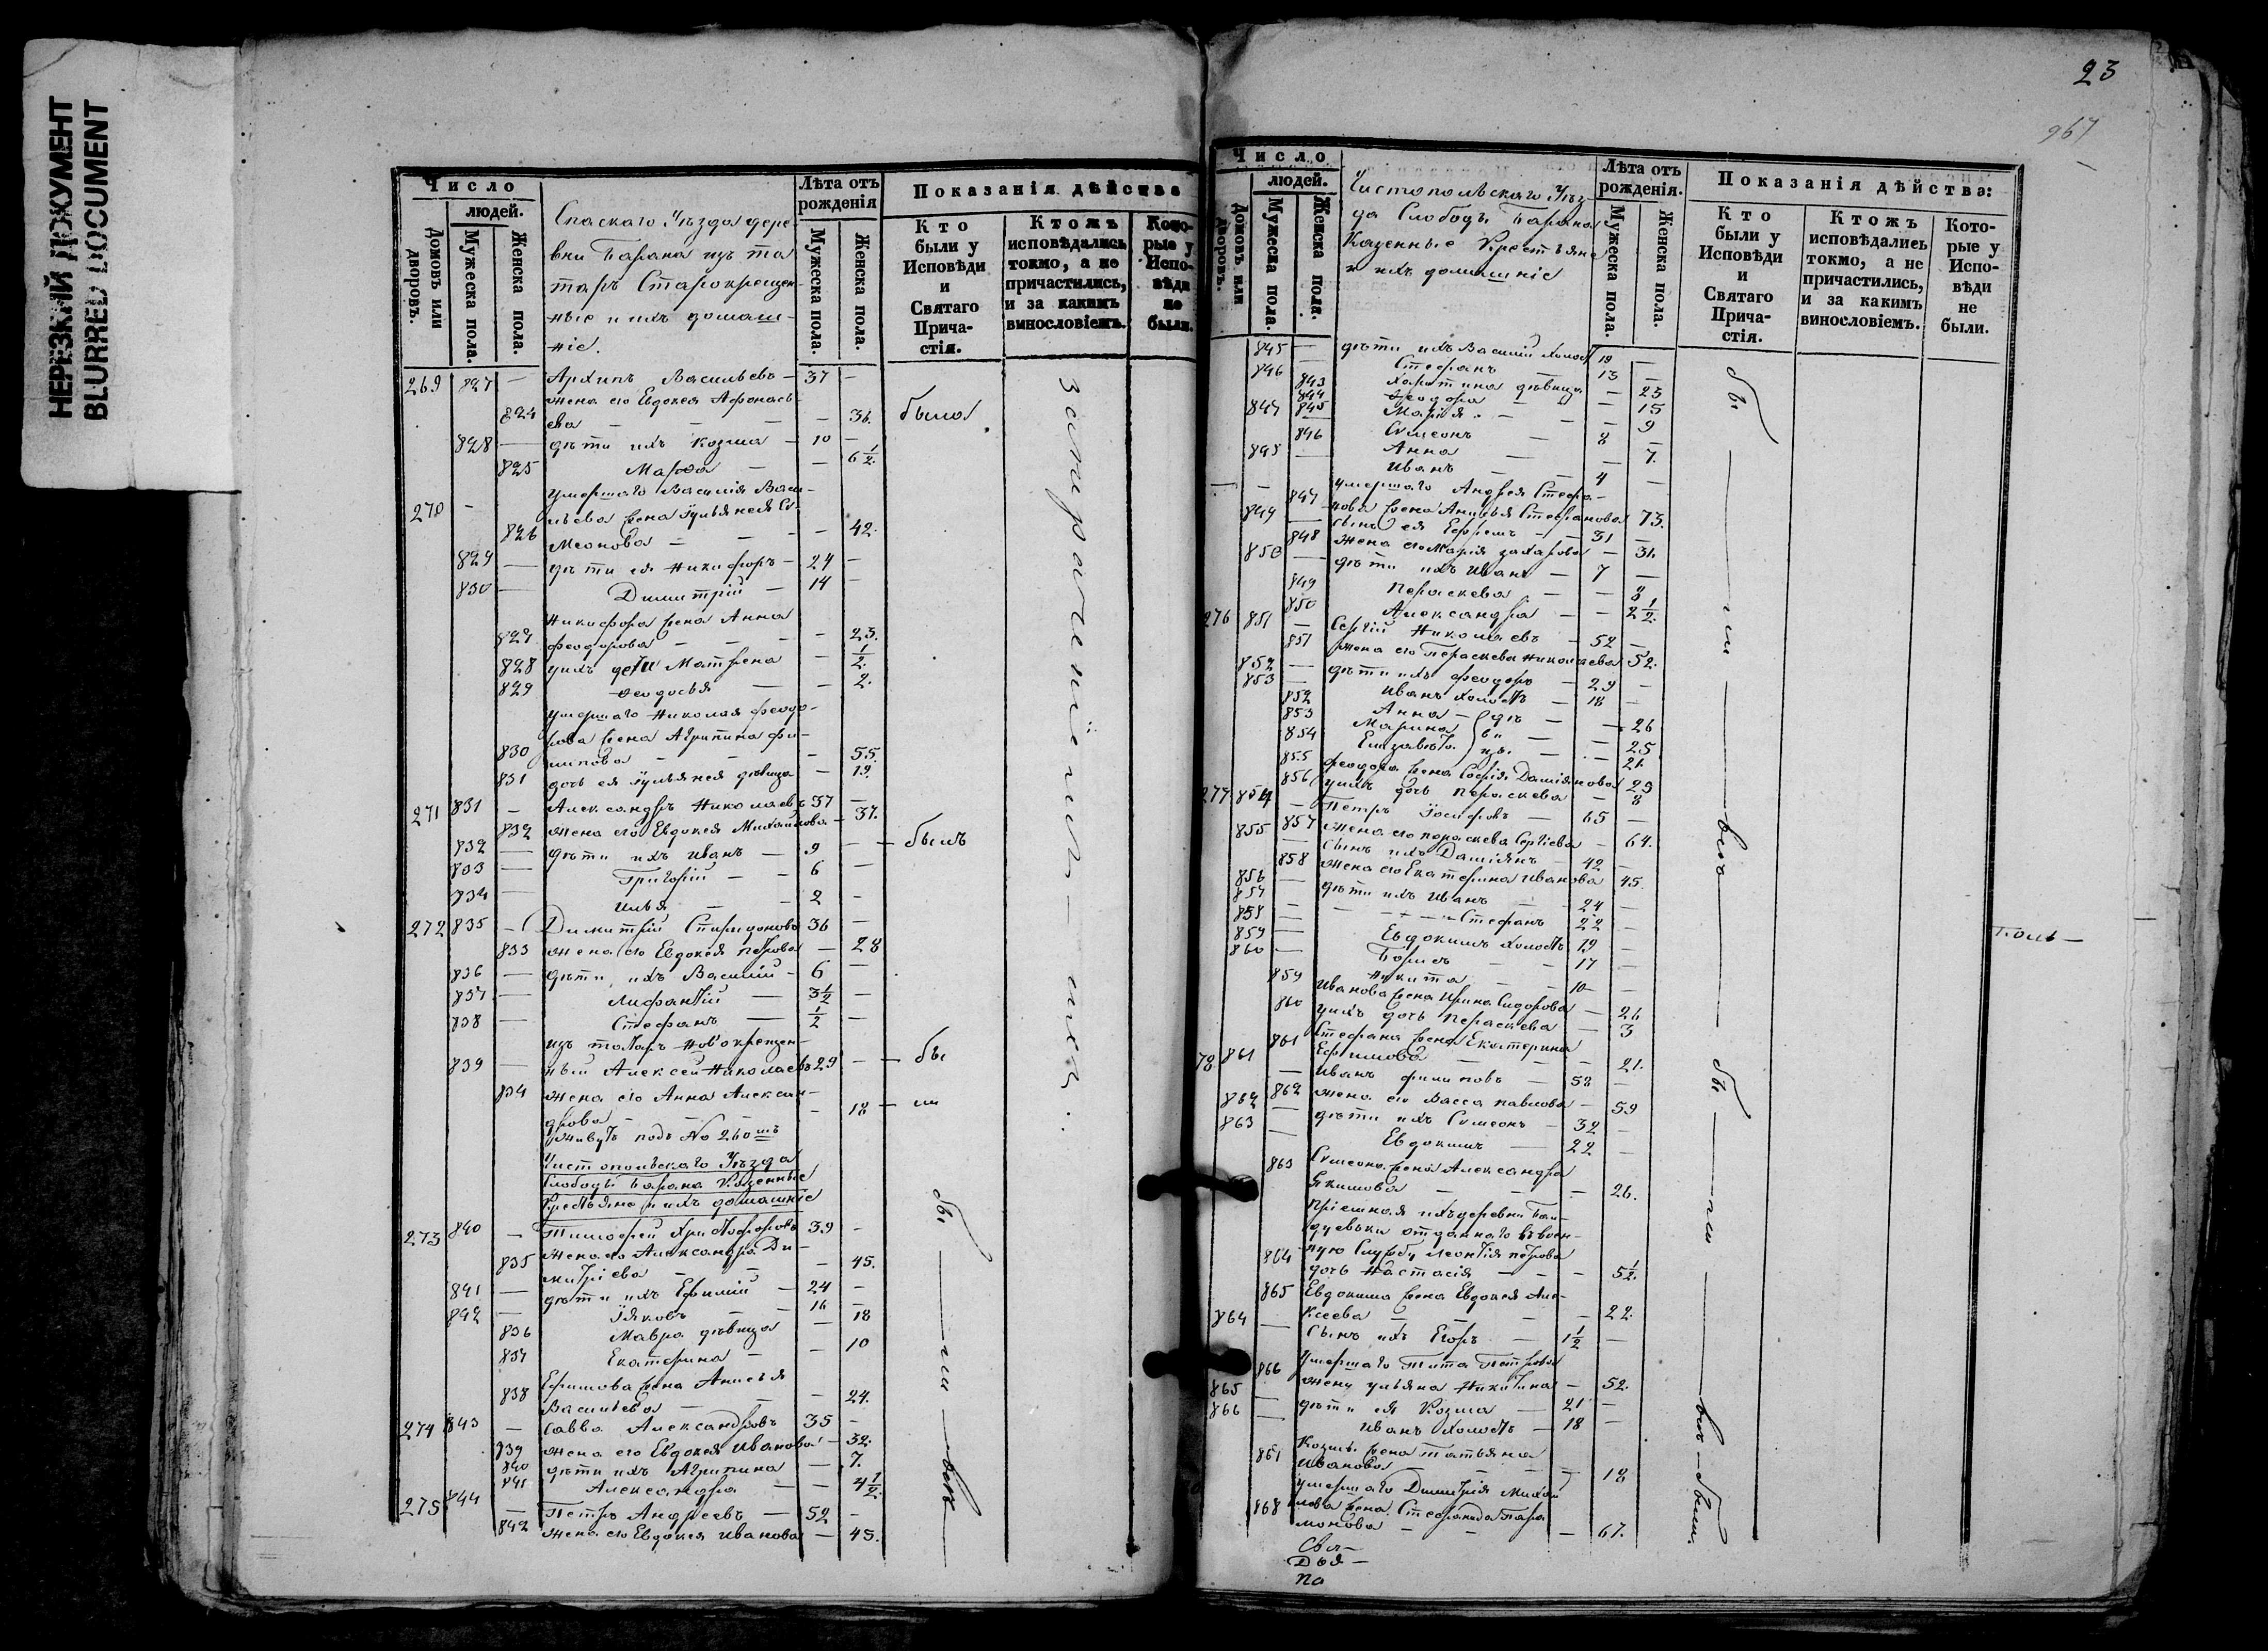 НЕРЕЗКИЙ ДОКУМЕНТ
BLURRED DOCUMENT
Число
людей.
Домовъ или дворовъ.
Мужеска пола.
Женска пола.
Спаскаго Уѣзда дере-
вни Барана изъ та
таръ Старокрещен-
ные и ихъ домаш-
ніе.
Лѣта отъ рожденія
Мужеска пола.
Женска пола.
Показанія дѣйства
Кто были у Исповѣди и Святаго Прича-стія.
Ктожъ исповѣдались токмо, а не причастились, и за какимъ винословіемъ.
Кото-рые у Испо-вѣди не были.
269 827 — Архипъ Васильевъ — 37 —
жена его Евдокея Афонась-
824 ева — — — — 36. была
828 — дѣти ихъ Козма — 10 —
825 Марѳа — — 6 1/2.
270 — умершаго Василія Васи-
льева жена Іульянея Си-
826 меонова — — — 42.
829 — дѣти ея Никифоръ — 24 —
830 — Димитрій — 14 —
Никифора жена Анна
827 феодорова — — — 23.
828 ихъ дети Матрена — 1/2.
829 Феодосья — — 2.
умершаго Николая феодо-
рова жена Агрипина фи-
830 липова — — 55.
831 дочь ея Іульянея дѣвица — 19.
271 831 — Александръ Николаевъ 37 —
832 жена его Евдокея Михайлова — 37.
832 — дѣти ихъ Иванъ — 9 — — былъ
833 — Григорій — — 6
834 — Илья — — 2 —
272 835 — Димитрій Спиридоновъ 36 —
833 жена его Евдокея Петрова — 28
836 — дѣти ихъ Василій — 6 —
837 — 3 1/2 —
838 — Стефанъ — 1/2 —
изъ татаръ Новокрещен-
839 — ный Алексей Николаевъ 29 — — бы
834 жена его Анна Алексан-
дрова — — — 18 — ли
Живутъ подъ No 260мъ
Чистопольскаго Уѣзда
Слободы Барана Казенные
Крестьяне и ихъ домашніе
273 840 — Тимофей Христофоровъ 39 —
жена его Александра Ди-
835 митріева — — 45.
841 — дѣти ихъ Ефимій — 24 —
842 — Іяковъ — — 16 —
836 Мавра дѣвица — 18
837 Екатерина — — 10
Ефимова жена Анисья
838 Васильева — — 24.
274 843 — Савва Александровъ 35 —
839 жена его Евдокея Иванова — 32.
840 дѣти ихъ Агрипина — 7.
841 Александра — — 4 1/2.
275 844 — Петръ Андреевъ — 52 —
842 жена его Евдокея Иванова — 45.
бы — ли — вси
23
967
Число
людей.
Домовъ или дворовъ.
Мужеска пола.
Женска пола.
Чистопольскаго Уѣз-
да Слободы Барана
Казенные Крестьяне
и ихъ домашніе
Лѣта отъ рожденія.
Мужеска пола.
Женска пола.
Показанія дѣйства:
Кто были у Исповѣди и Святаго Прича-стія.
Ктожъ исповѣдались токмо, а не причастились, и за какимъ винословіемъ.
Кото-рые у Испо-вѣди не были.
845 — дѣти ихъ Василій холостъ 19 —
846 — Стефанъ — 13 —
843 Харитина дѣвица — 23
844 Феодора — — 15
845 Марія — — 9
847 — Симеонъ — 8 —
846 Анна — — 7.
Иванъ — 4 —
умершаго Андрея Стефа-
847 нова жена Анисья Стефанова 73.
849 — сынъ ея Ефремъ — 31 —
848 жена его Марія Захарова — 31.
850 — дѣти ихъ Иванъ — 7 —
849 Пераскева — — 8
850 Александра — — 2 1/2.
276 851 — Сергій Николаевъ — 52 —
851 жена его Пераскева Николаева 52.
852 — дѣти ихъ феодоръ — 29 —
853 — Иванъ холостъ — 18 —
852 Анна — дѣ — — 26
853 Марина — ви — — 25
854 Елизавета цы — — 21.
855 феодора жена Софія Даміянова 29
856 у ихъ дочь Пераскева — 8
277 854 — Петръ Іосифовъ — 65 —
857 жена его Пораскева Сергіева — 64.
855 — сынъ ихъ Даміянъ — 42 —
858 жена его Екатерина Иванова 45.
856 — дѣти ихъ Иванъ — 24 —
857 — Стефанъ 22 —
858 — Евдокимъ холостъ 19 —
859 — Борисъ — — 17 —
860 — Никита — — 10 —
859 Иванова жена Ирина Сидорова — 26
860 у ихъ дочь Пераскева — 3
Стефана жена Екатерина
861 Ефимова — — — 21.
78 861 — Иванъ филиповъ — 58 —
862 жена его Васса Павлова — 59
862 — дѣти ихъ Симеонъ — 32 —
863 — Евдокимъ — 22 —
Симеона жена Александра
863 Якимова — — — 26.
864 дочь Настасія — — — 5 1/2.
Евдокима жена Евдокея Але-
865 ксеева — — — 22.
864 — Сынъ ихъ Егоръ — 1 1/2 —
Умершаго Тита Петрова
866 жена Ульяна Никитина — 52.
865 — дѣти ея Козма — 21 —
866 — Иванъ холостъ — 18 —
Козмы жена Татьяна
867 Иванова — — — 18
умершаго Димитрія Михай
лова жена Стефанида Пара
868 монова — — — 67.
бы — ли — вси — бы — ли — вси — были.
Свя-
Дья-
По